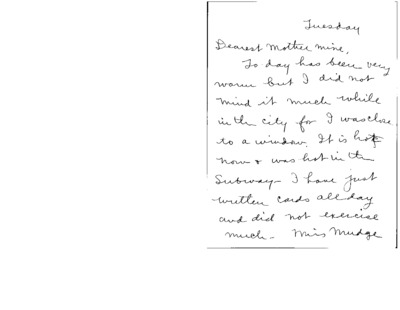 Tuesday
Dearest Mother mine,
To day has been very
warm but I did not
mind it much while
in the city for I was close
to a window. It is hot
now & was hot in the
Subway - I have just
written cards all day
and did not exercise
much - Miss Mudge